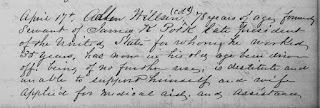 April 17th, Allen Willson, (cd) 78 years of age, formerly
Servant of James K Polk, late President
of the United State for whome he worked
55 years, has now in his old age been driven
off being of no further use, is destitute and
unable to support himself and wife
applied for medical aid, and assistance.